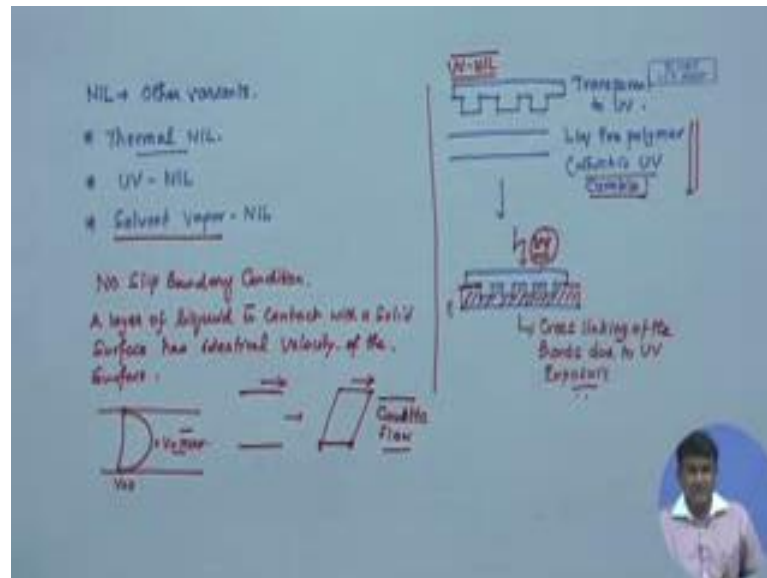 NIL → Other variants.
* Thermal NIL.
* UV - NIL
* Solvent Vapor - NIL
No Slip Boundary Condition.
A layer of liquid in contact with a Solid
Surface has identical velocity of the
Surface.
Couette
flow
UV-NIL
Transparent
to UV.
Liq Pre polymer
UV
Curable
UV
Cross linking of the
Bonds due to UV
Exposure